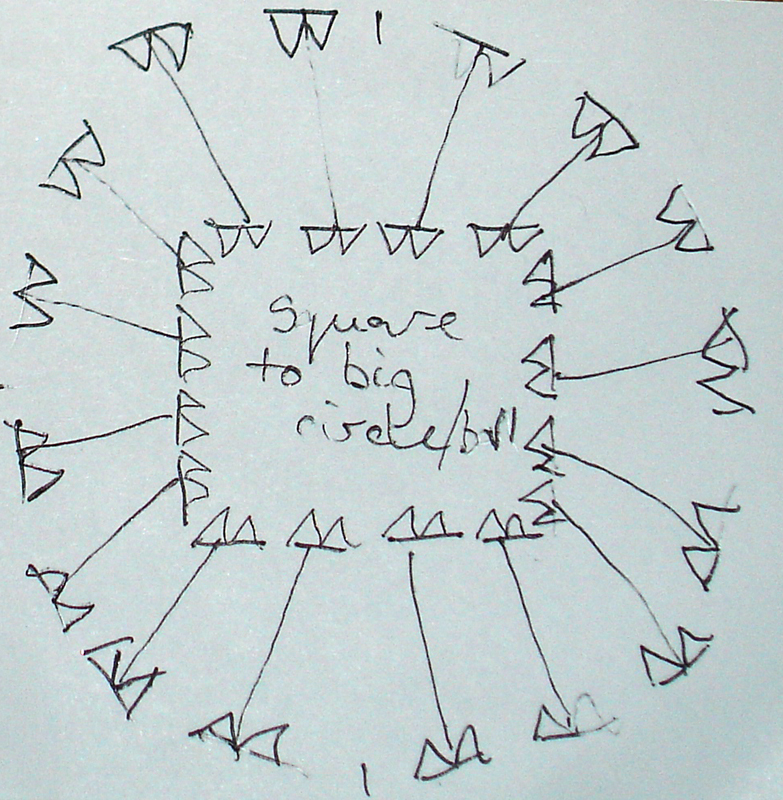 Square
to big
circle/ball